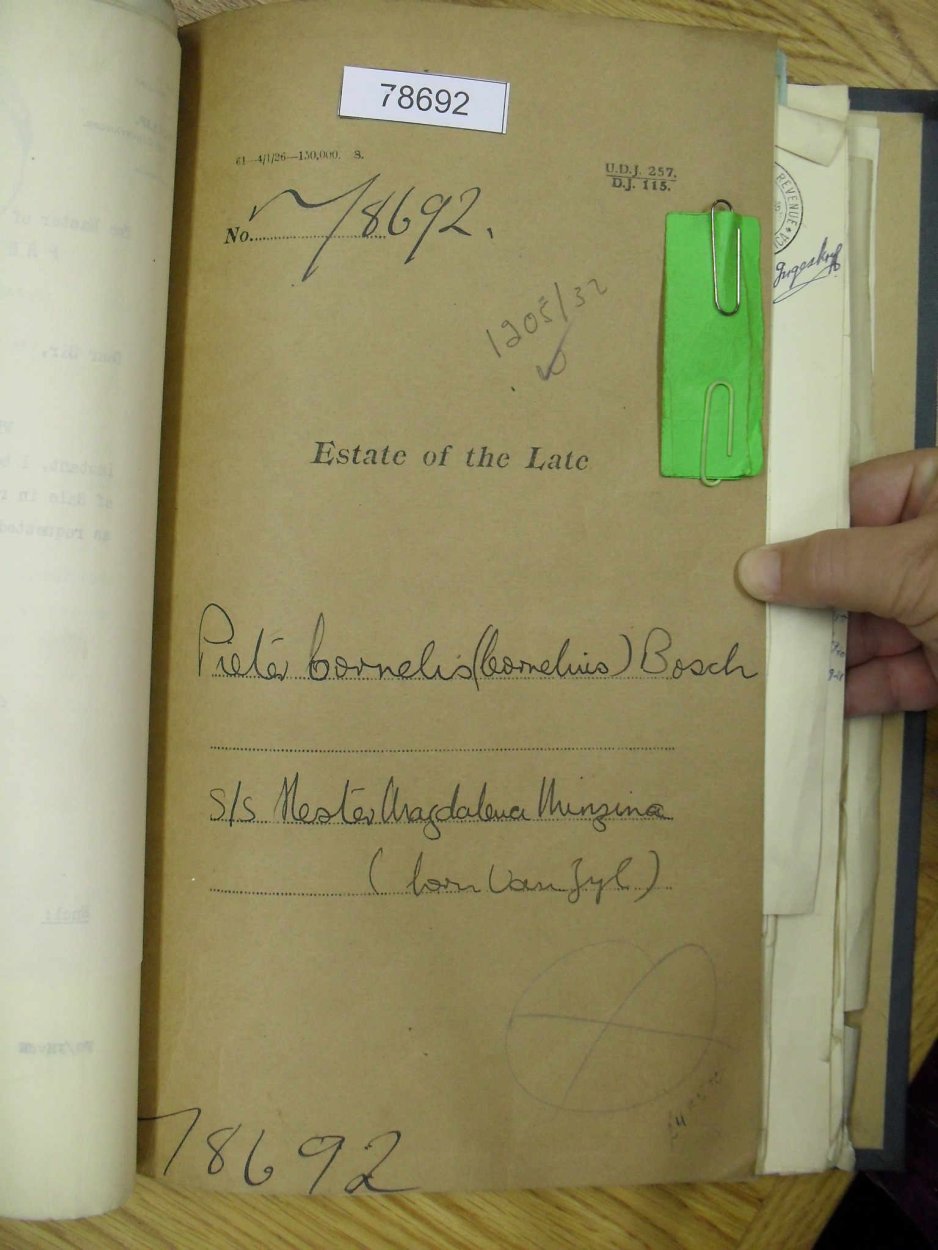 78692
61—4/1/26—150,000. S.
U.D.J. 257.
D.J. 115.
No. 78692.
1205/32
Estate of the Late
Pieter Cornelis (Cornelius) Bosch
s/s Hester Magdalena Minzina
(born Van Zyl)
78692
REVENUE